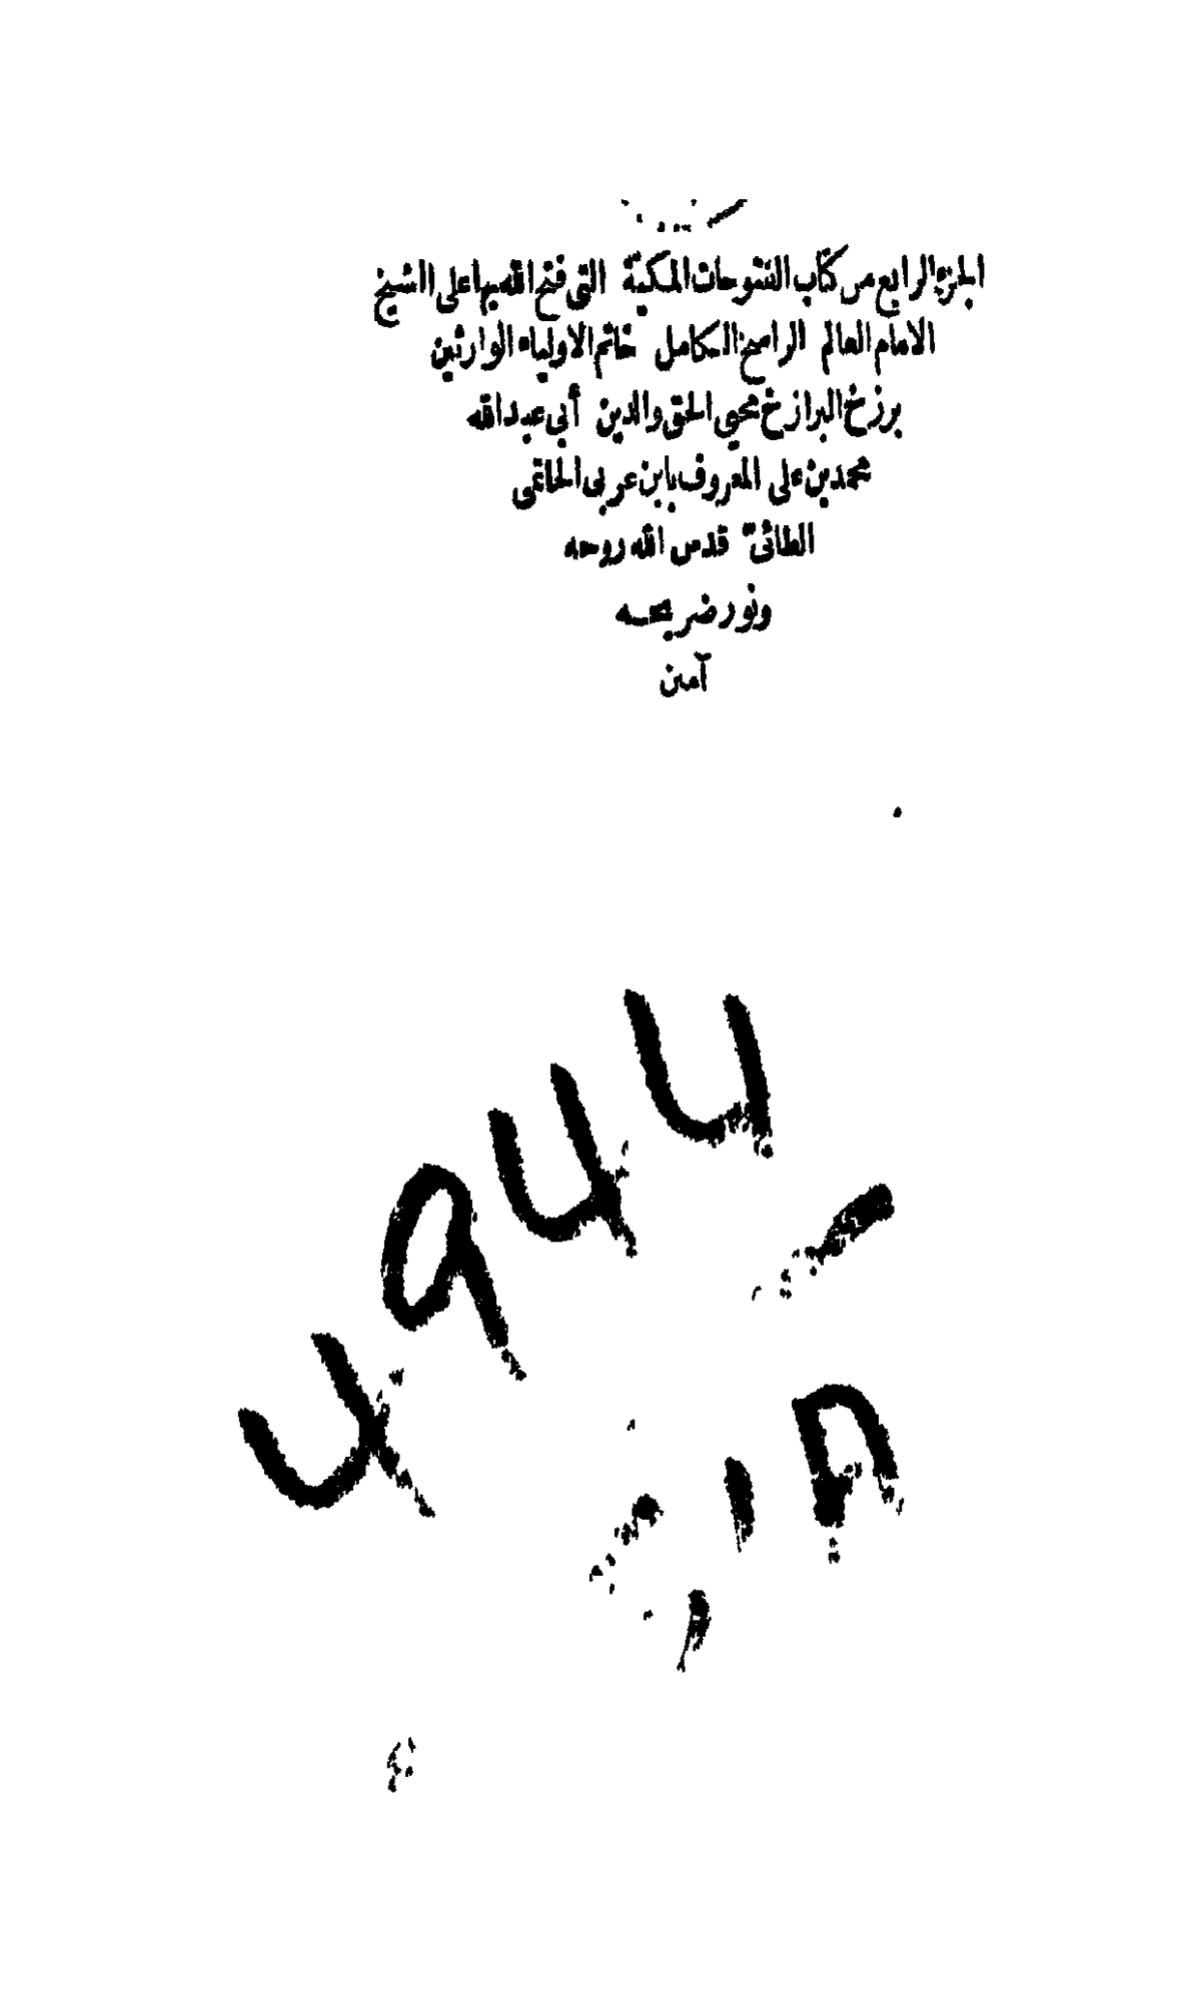 الجزء الرابع من كتاب الفتوحات المكية التى فتح الله بها على الشيخ
الامام العالم الراسخ الكامل خاتم الاولياء الوارثين
برزخ البرازخ محيى الحق والدين أبى عبد الله
محمد بن على المعروف بابن عربى الحاتمى
الطائىّ قدس الله روحه
ونور ضريحه
آمين